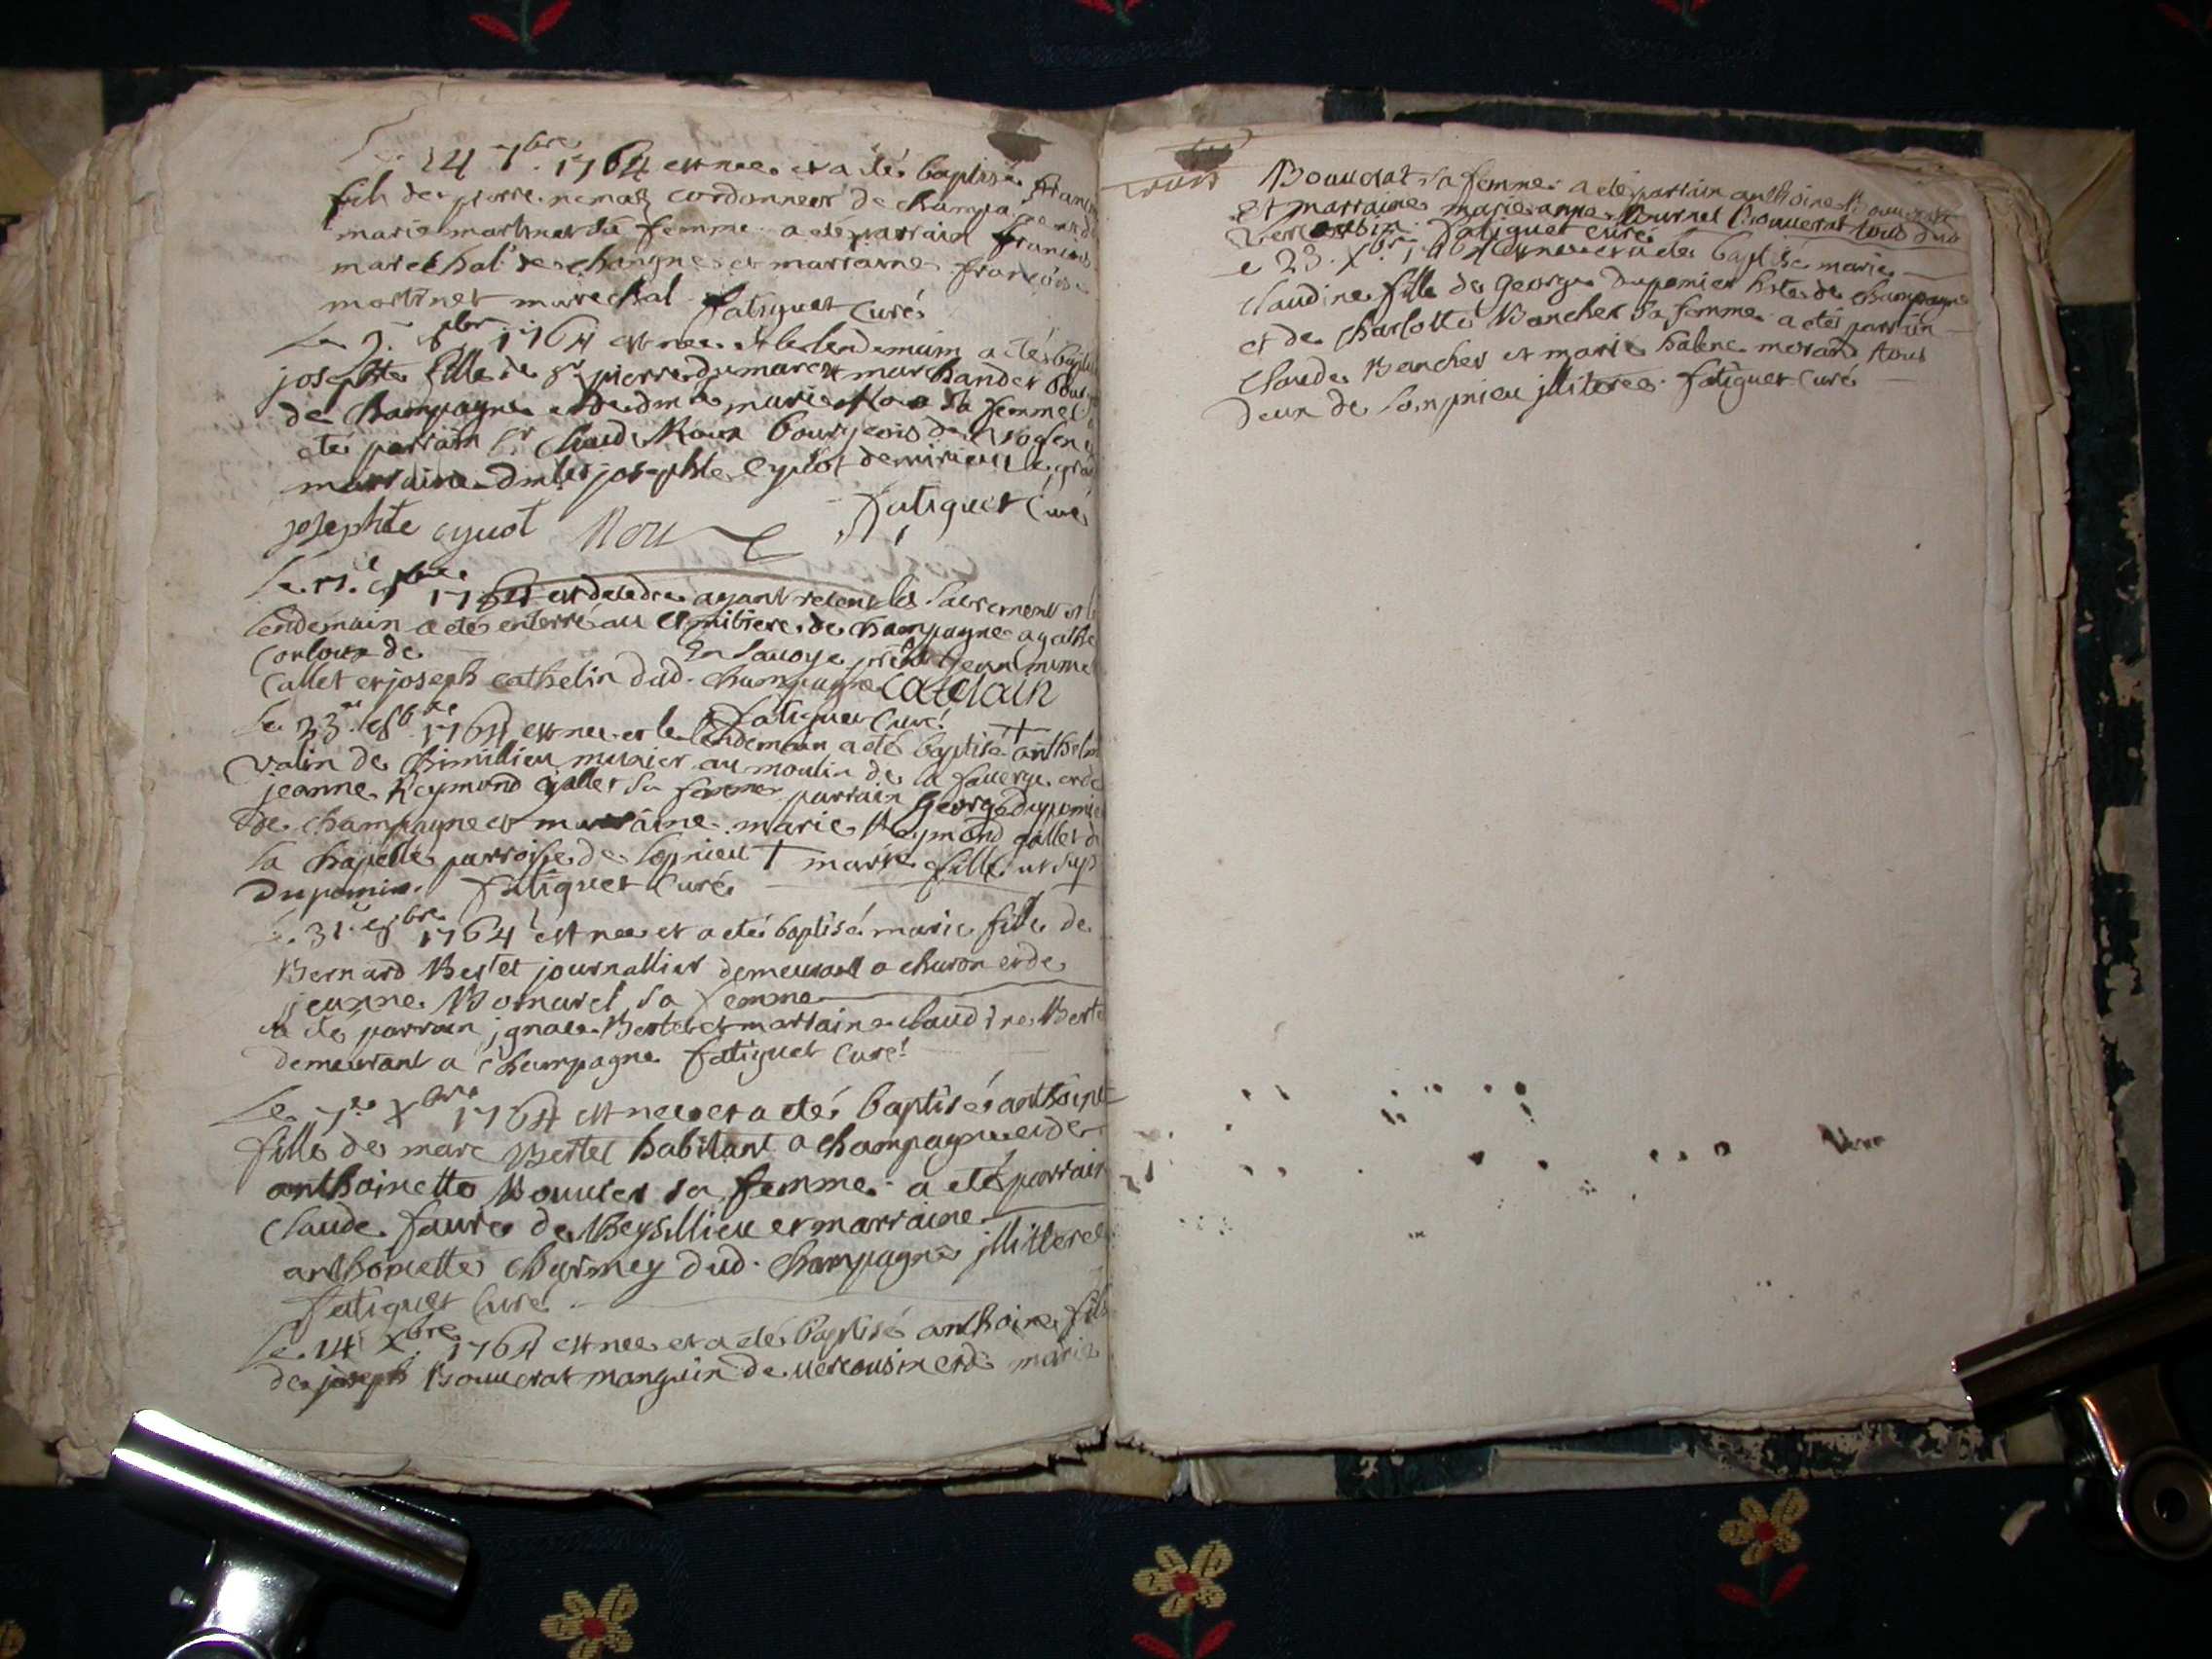 Le 24 7bre 1764 est nee et a eté baptisé
fils de pierre nemoz cordonnier de champagne et de
marie martinet sa femme a eté parrain francois
marechal de changne et marraine francoise
martinet marechal fatiguet Curé
Le 8bre 1764 est nee et le lendemain a eté
josephte fille de Sr pierre dumarest marchand et
de champagne et de dme marie Roux sa femme
eté parrain Sr Claude Roux bourgeois de
marraine dmlle josephte Cyvot de virieu le grand
fatiguet Curé
josephte cyvot Roux
Le 8bre 1764 est decedee ayant receu les Sacrements et le
lendemain a eté enterré au Cimitiere de champagne agathe
de En Savoye
Callet et joseph cathelin dud. champagne Catelain
fatiguet Curé
Le 23 8bre 1764 est nee et le lendemain a eté baptisé + anthelme
valin de munier au moulin de la faverge et de
jeanne Reymond gallet sa femme parrain George dupomier
de champagne et marraine marie Reymond gallet de
la chapelle parroisse de lopnieu + marie fille ut sup
Dupomier fatiguet Curé
Le 31 8bre 1764 est nee et a eté baptisé marie fille de
Bernard Bertet journallier demeurant a charon et de
jeanne Bornarel sa femme
a eté parrain jgnace Bertet et marraine claudine Bertet
demeurant a champagne fatiguet Curé
Le 7e Xbre 1764 est nee et a eté baptisé anthoinette
fille de marc Bertet habitant a champagne et de
anthoinette Bouvier sa femme a eté parrain
Claude faure de Beysillieu et marraine
anthoinette Charmey dud. champagne jlliteres
fatiguet Curé
Le 14 Xbre 1764 est nee et a eté baptisé anthoine fils
de joseph Bouverat manguin de vercousin et de marie
Bouverat sa femme a eté parrain anthoine Bouverat
et marraine marie anne Bouverat tous dud
vercousin fatiguet Curé
e 23 Xbre 1764 est nee et a eté baptisé marie
Claudine fille de George Dupomier hote de champagne
et de Charlotte Bancher sa femme a eté parrain
Claude Bancher et marie halene morand tous
deux de Sonpnieu jlliteres fatiguet Curé